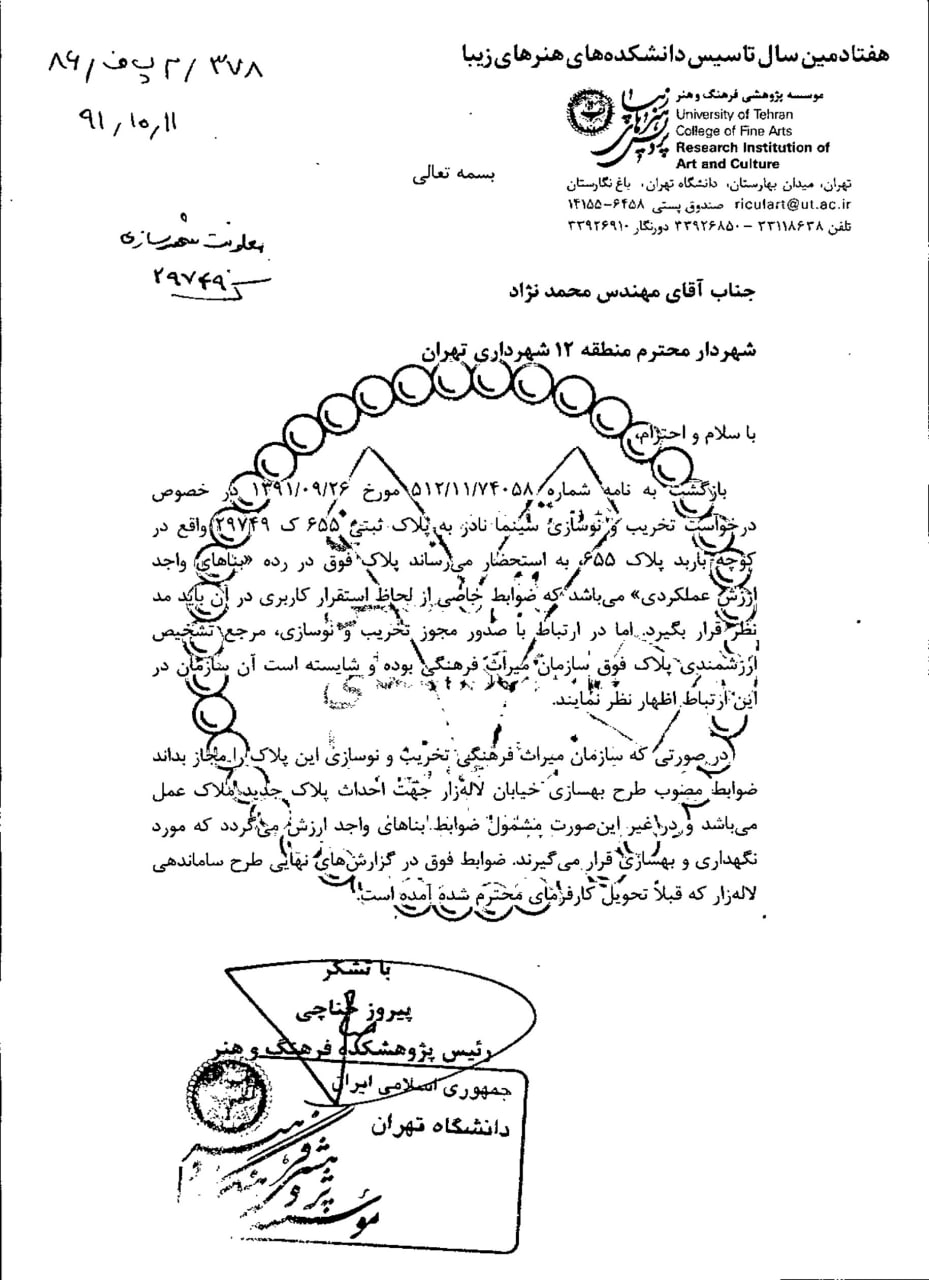 هفتادمین سال تاسیس دانشکده‌های هنرهای زیبا
۳۷۸ / م پ ف / ۸۹
۹۱,۱۰,۱۱
موسسه پژوهشی فرهنگ و هنر
University of Tehran
College of Fine Arts
Research Institution of
Art and Culture
تهران، میدان بهارستان، دانشگاه تهران، باغ نگارستان
ricufart@ut.ac.ir صندوق پستی ۶۴۵۸-۱۴۱۵۵
تلفن ۳۳۱۱۸۶۳۸ - ۳۳۹۲۶۸۵۰ دورنگار ۳۳۹۲۶۹۱۰
بسمه تعالی
معاونت شهرسازی
۲۹۷۴۹
جناب آقای مهندس محمد نژاد
شهردار محترم منطقه ۱۲ شهرداری تهران
با سلام و احترام،
بازگشت به نامه شماره ۵۱۲/۱۱/۷۴۰۵۸ مورخ ۱۳۹۱/۰۹/۲۶ در خصوص
درخواست تخریب و نوسازی سینما نادر به پلاک ثبتی ۶۵۵ ک ۲۹۷۴۹ واقع در
کوچه باربد پلاک ۶۵۵، به استحضار می‌رساند پلاک فوق در رده «بناهای واجد
ارزش عملکردی» می‌باشد که ضوابط خاصی از لحاظ استقرار کاربری در آن باید مد
نظر قرار بگیرد. اما در ارتباط با صدور مجوز تخریب و نوسازی، مرجع تشخیص
ارزشمندی پلاک فوق سازمان میراث فرهنگی بوده و شایسته است آن سازمان در
این ارتباط اظهار نظر نمایند.
در صورتی که سازمان میراث فرهنگی تخریب و نوسازی این پلاک را مجاز بداند
ضوابط مصوب طرح بهسازی خیابان لاله‌زار جهت احداث پلاک جدید ملاک عمل
می‌باشد و در غیر این‌صورت مشمول ضوابط بناهای واجد ارزش می‌گردد که مورد
نگهداری و بهسازی قرار می‌گیرند. ضوابط فوق در گزارش‌های نهایی طرح ساماندهی
لاله‌زار که قبلاً تحویل کارفرمای محترم شده آمده است.
با تشکر
پیروز حناچی
رئیس پژوهشکده فرهنگ و هنر
جمهوری اسلامی ایران
دانشگاه تهران